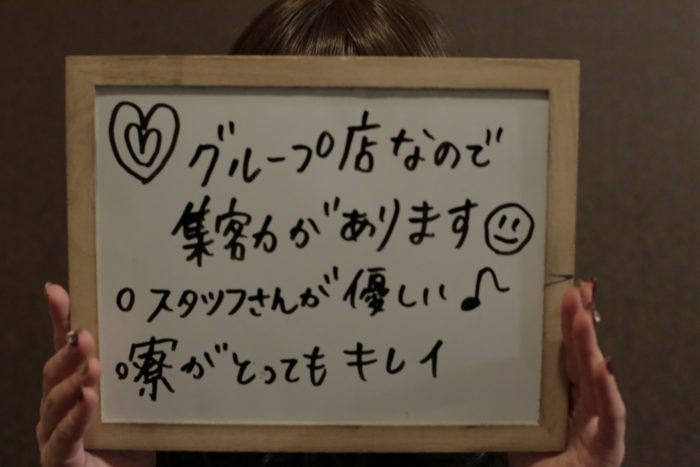 グループ店なので
集客力があります
○スタッフさんが優しい♪
○寮がとってもキレイ